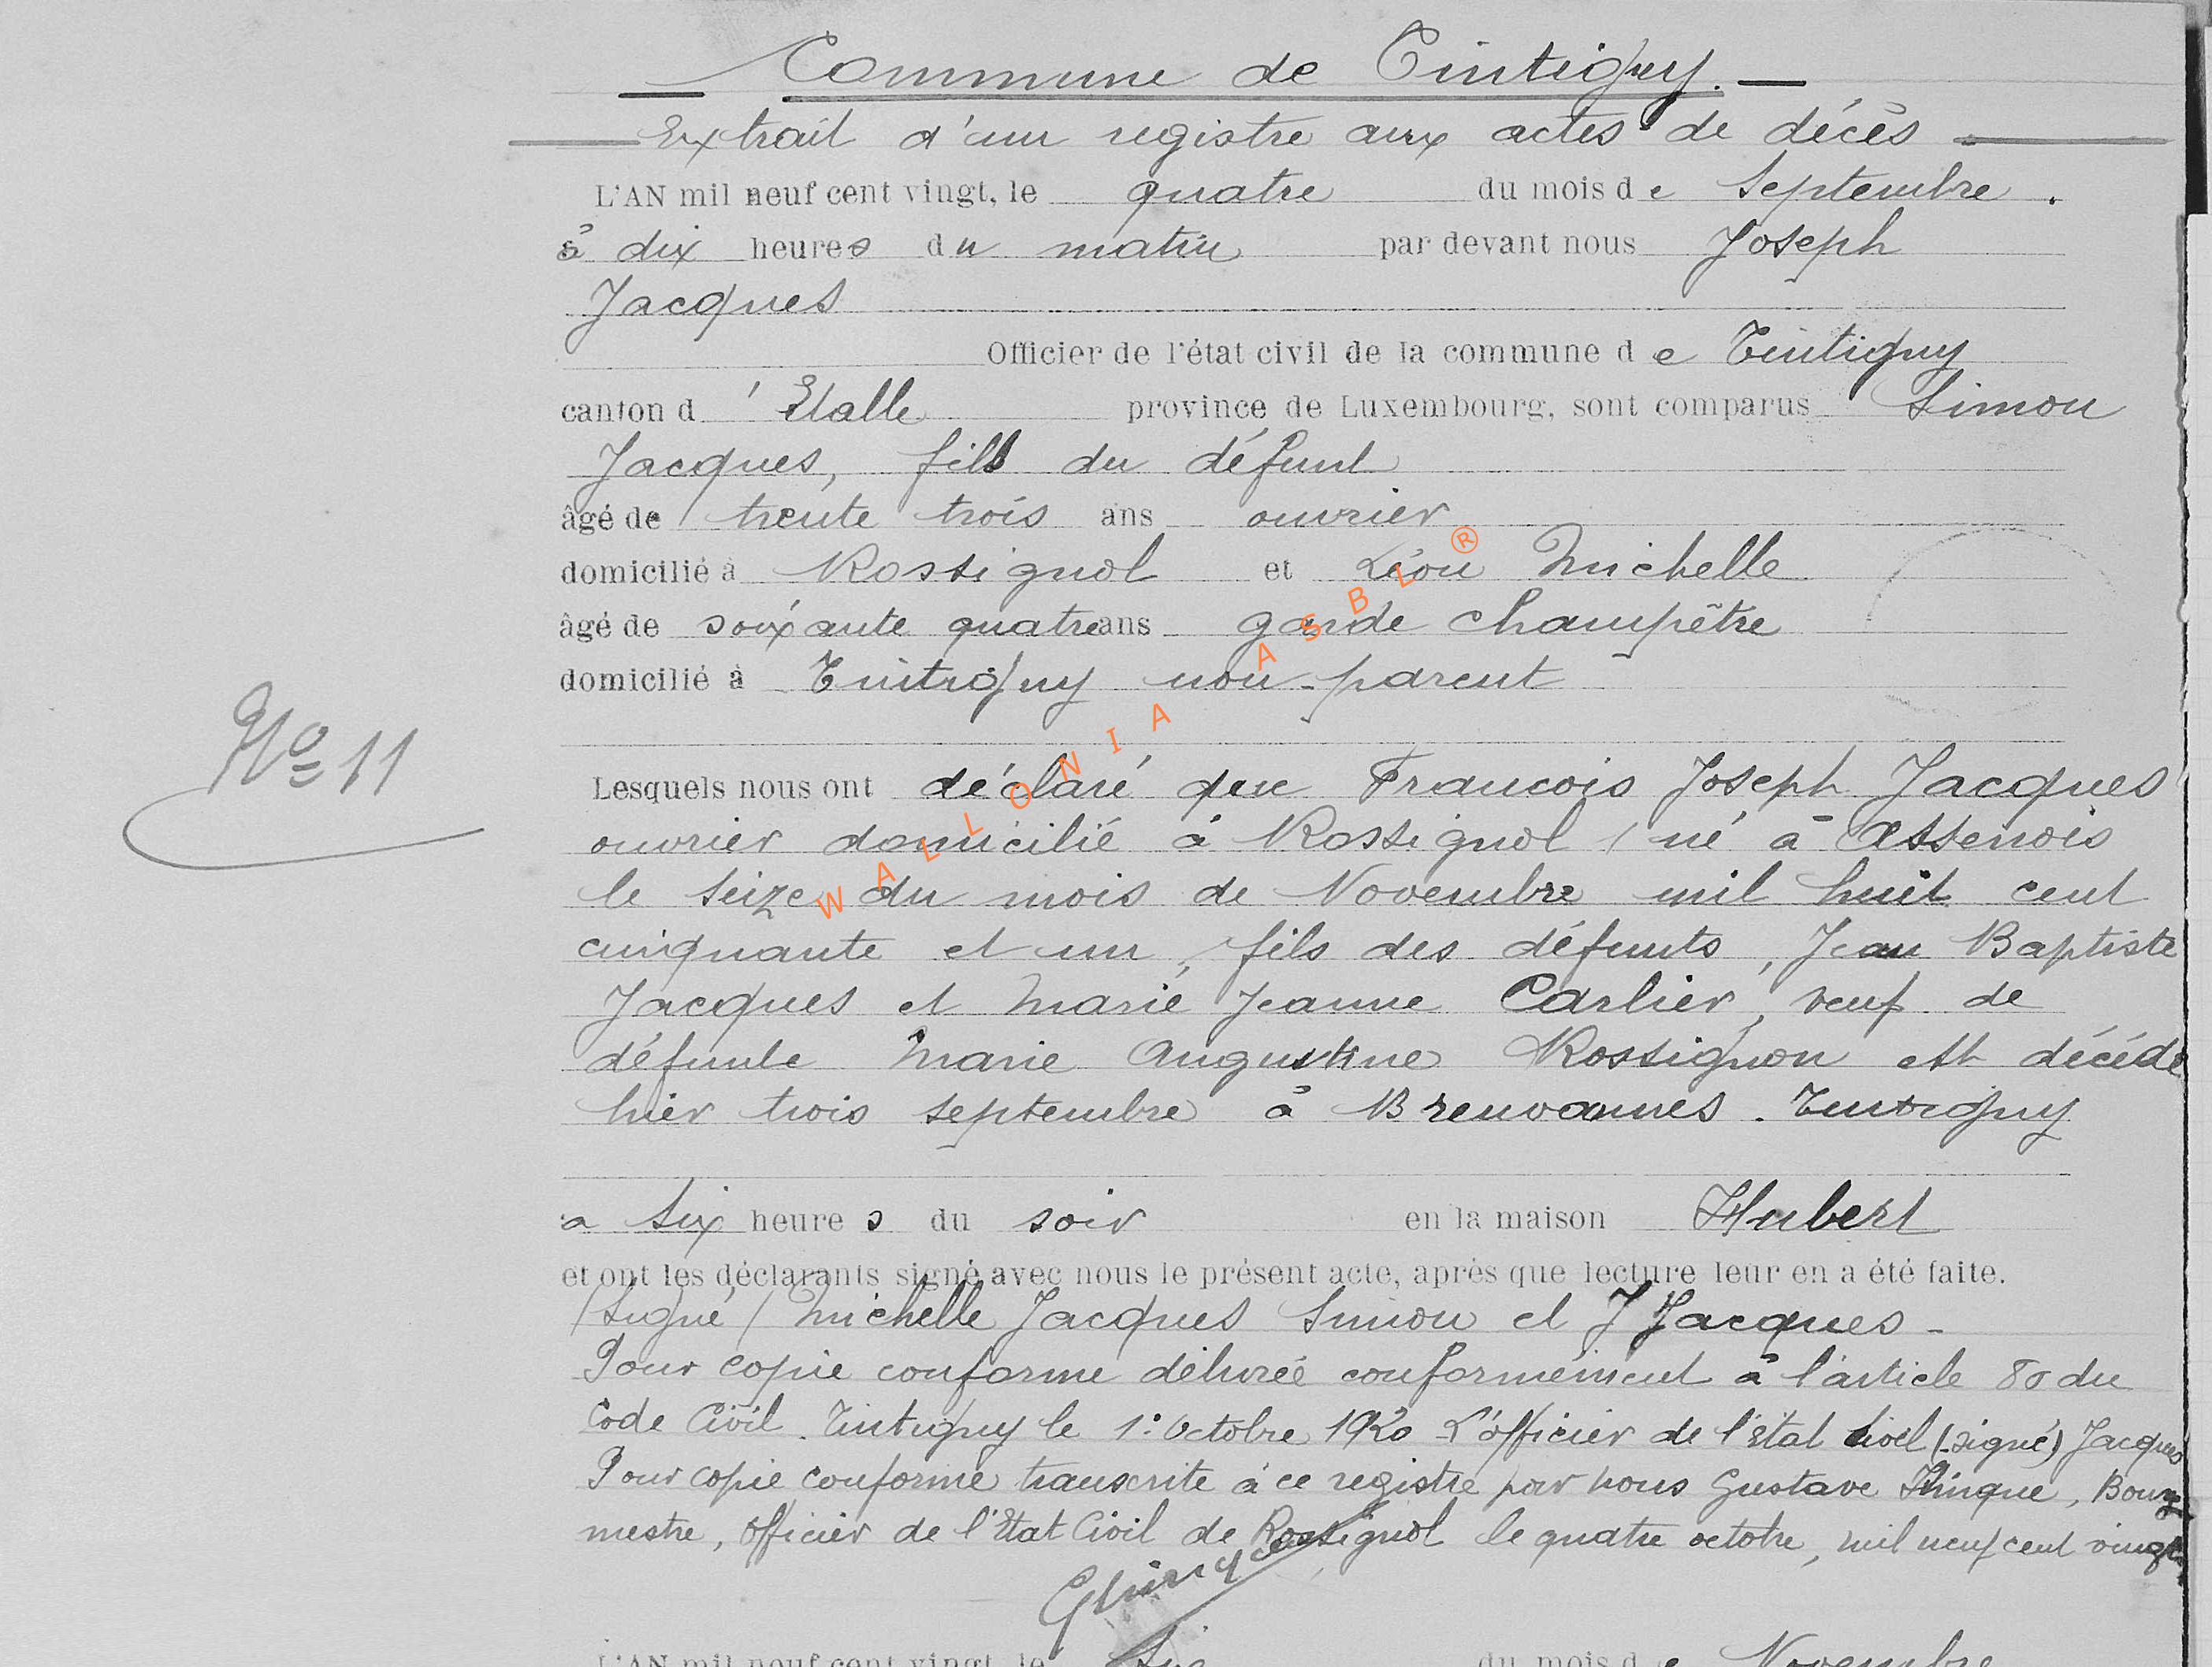 Commune de Tintigny.
Extrait d'un registre aux actes de décès
L'AN mil neuf cent vingt, le quatre du mois de Septembre.
à dix heures du matin par devant nous Joseph
Jacques
Officier de l'état civil de la commune de Tintigny
canton d'Etalle province de Luxembourg, sont comparus Simon
Jacques, fils du défunt
âgé de trente trois ans ouvrier
domicilié à Rossignol et Léon Michelle
âgé de soixante quatre ans garde champêtre
domicilié à Tintigny non-parent
No 11
Lesquels nous ont déclaré que Francois Joseph Jacques
ouvrier domicilié à Rossignol, né à Assenois
le seize du mois de Novembre mil huit cent
cinquante et un, fils des défunts, Jean Baptiste
Jacques et Marie Jeanne Carlier, veuf de
défunte Marie Augustine Rossignon est décédé
hier trois septembre à Breuvannes. Tintigny
a six heures du soir en la maison Hubert
et ont les déclarants signé avec nous le présent acte, après que lecture leur en a été faite.
(Signé) Michelle Jacques Simon et J Jacques -
Pour copie conforme délivrée conformément à l'article 80 du
Code Civil. Tintigny le 1: Octobre 1920 L'officier de l'état Civil (signé) Jacques
Pour copie conforme transcrite à ce registre par nous Gustave Bourg
mestre, officier de l'Etat Civil de Rossignol le quatre octobre, mil neuf cent vingt
L'AN mil neuf cent vingt, le six du mois de Novembre
WALLONIA ASBL ®